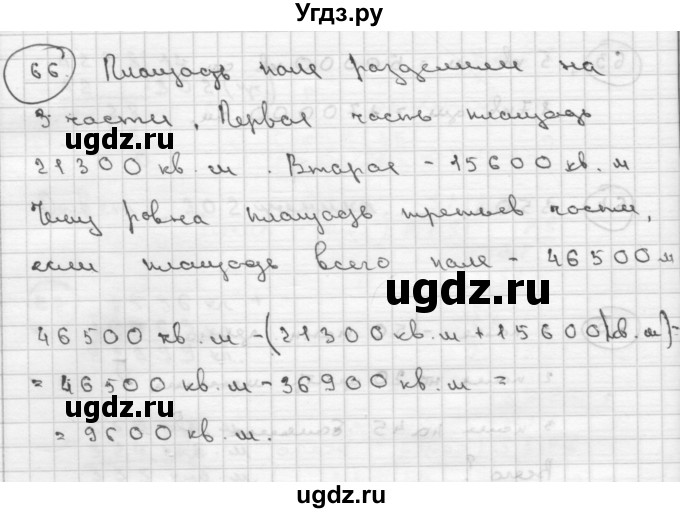 Угдз.ру
66. Площадь поля разделили на
3 части. Первая часть площадь
21300 кв. м. Вторая - 15600 кв. м
Чему равна площадь третьей части,
если площадь всего поля - 46500 м
46500 кв. м - (21300 кв. м + 15600 кв. м) =
= 46500 кв. м - 36900 кв. м =
= 9600 кв. м.
ugdz.ru
ugdz.ru
ugdz.ru
ugdz.ru
ugdz.ru
ugdz.ru